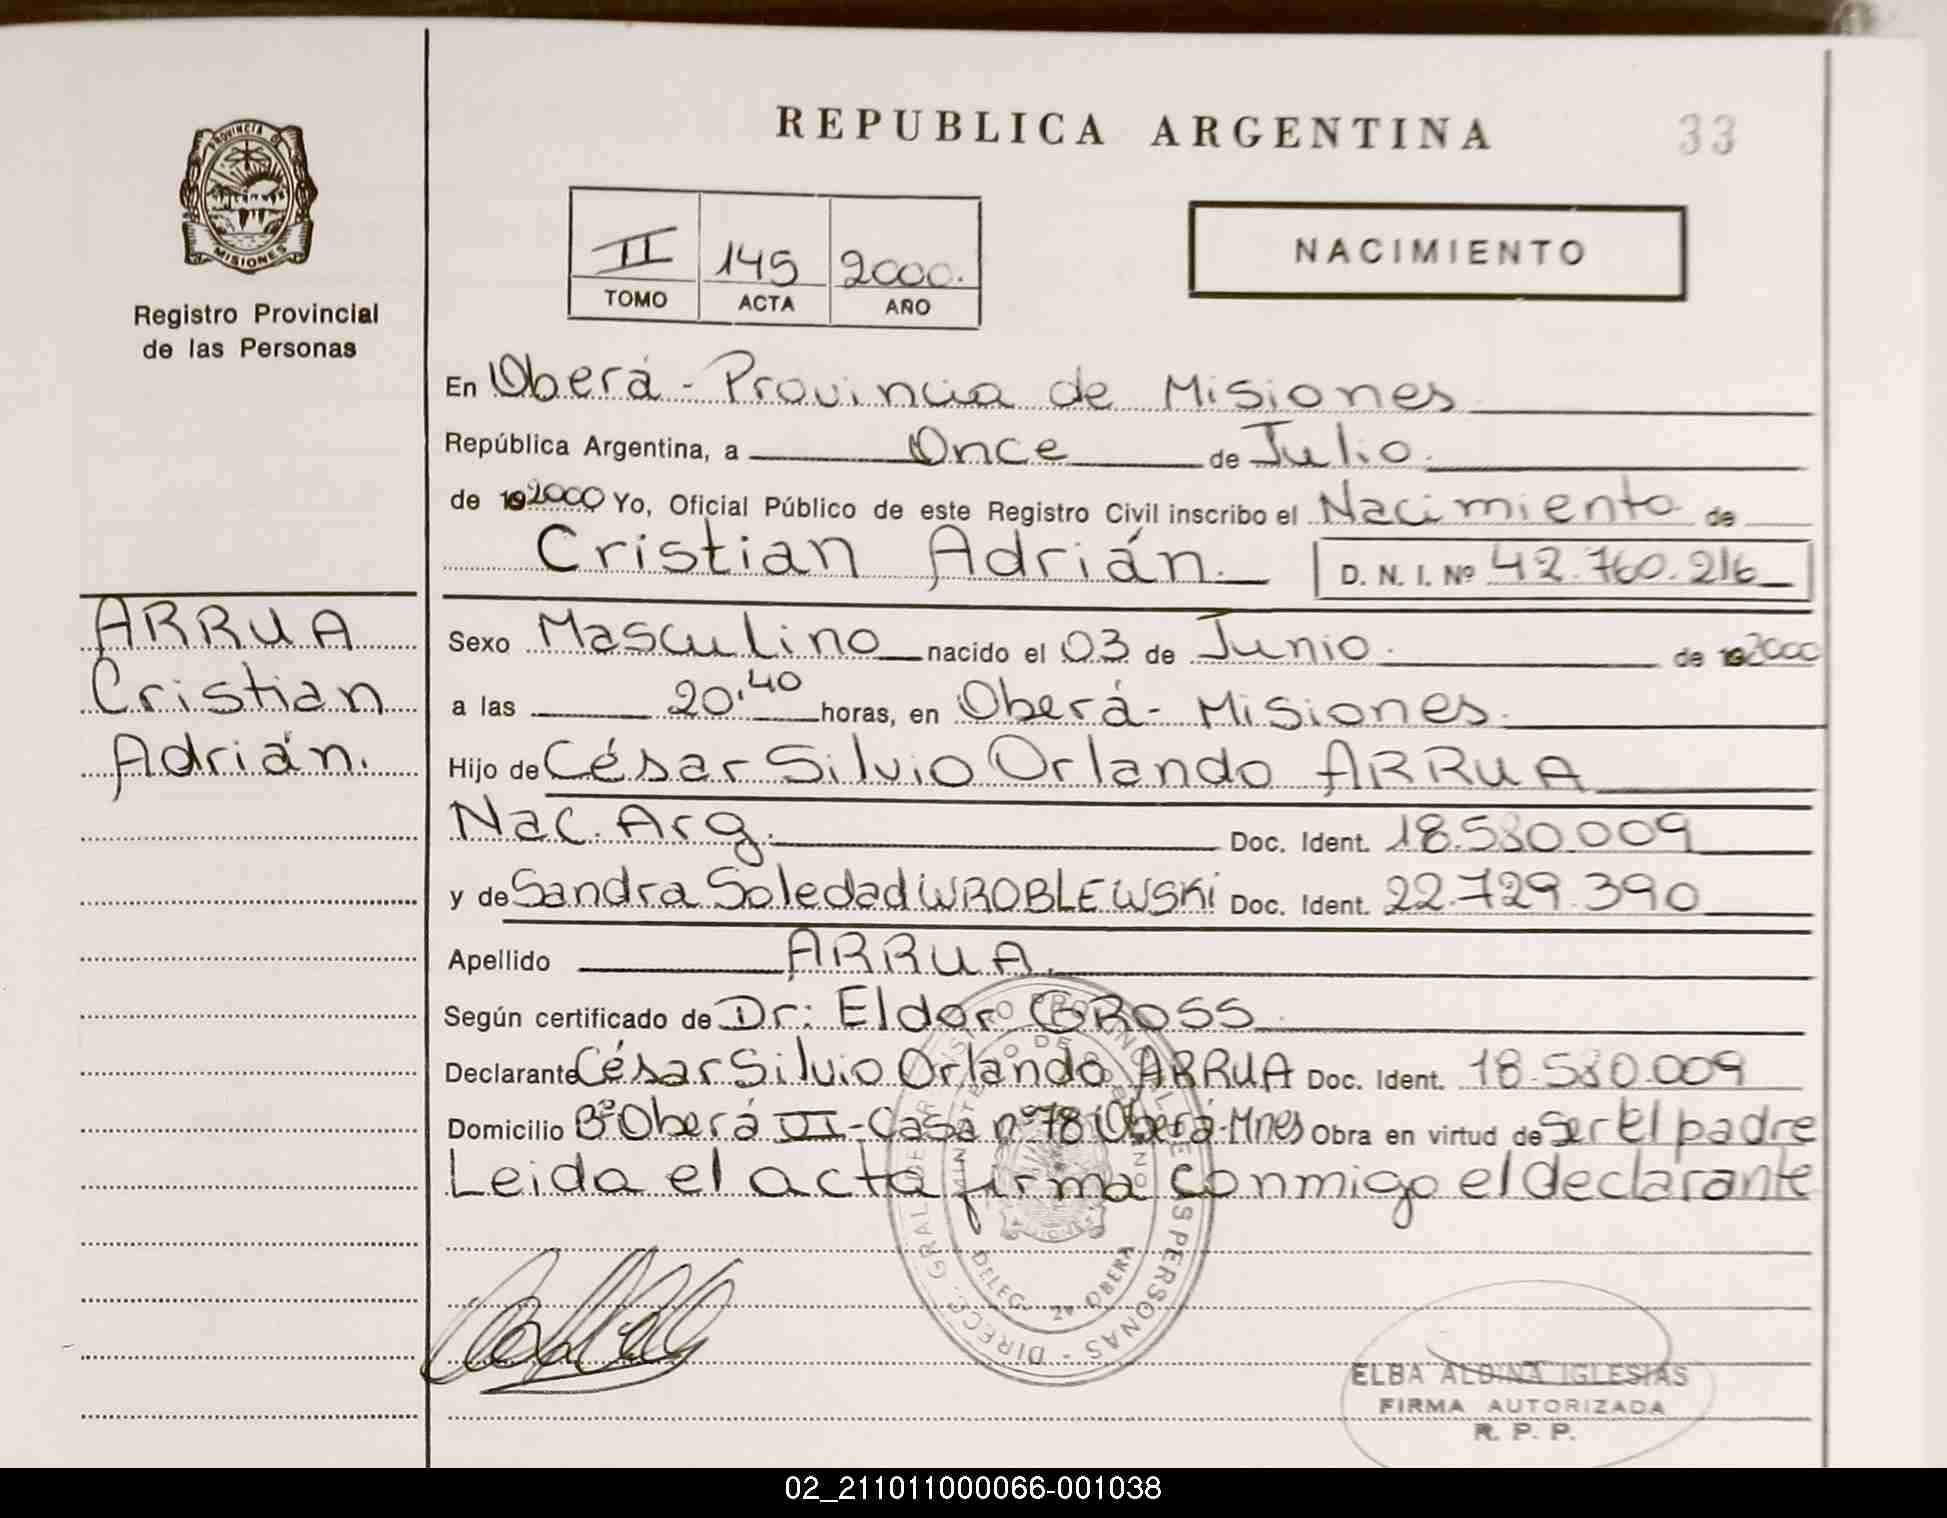 REPUBLICA ARGENTINA
33
PROVINCIA DE
MISIONES
Registro Provincial
de las Personas
II 145 2000.
TOMO ACTA AÑO
NACIMIENTO
En Oberá - Provincia de Misiones
República Argentina, a Once de Julio.
de 192000 Yo, Oficial Público de este Registro Civil inscribo el Nacimiento de
Cristian Adrián. D. N. I. Nº 42.760.216
ARRUA
Cristian
Adrián.
Sexo Masculino nacido el 03 de Junio. de 192000
a las 20:40 horas, en Oberá - Misiones.
Hijo de César Silvio Orlando ARRUA
Nac. Arg. Doc. Ident. 18.580.009
y de Sandra Soledad WROBLEWSKI Doc. Ident. 22.729.390
Apellido ARRUA.
Según certificado de Dr: Eldor GROSS
Declarante César Silvio Orlando ARRUA Doc. Ident. 18.580.009
Domicilio Bº Oberá VI - Casa nº 78 Oberá-Mnes Obra en virtud de Ser El padre
Leida el acta firma conmigo el declarante
DELEG. 2ª OBERA
ELBA ALDINA IGLESIAS
FIRMA AUTORIZADA
R. P. P.
02_211011000066-001038